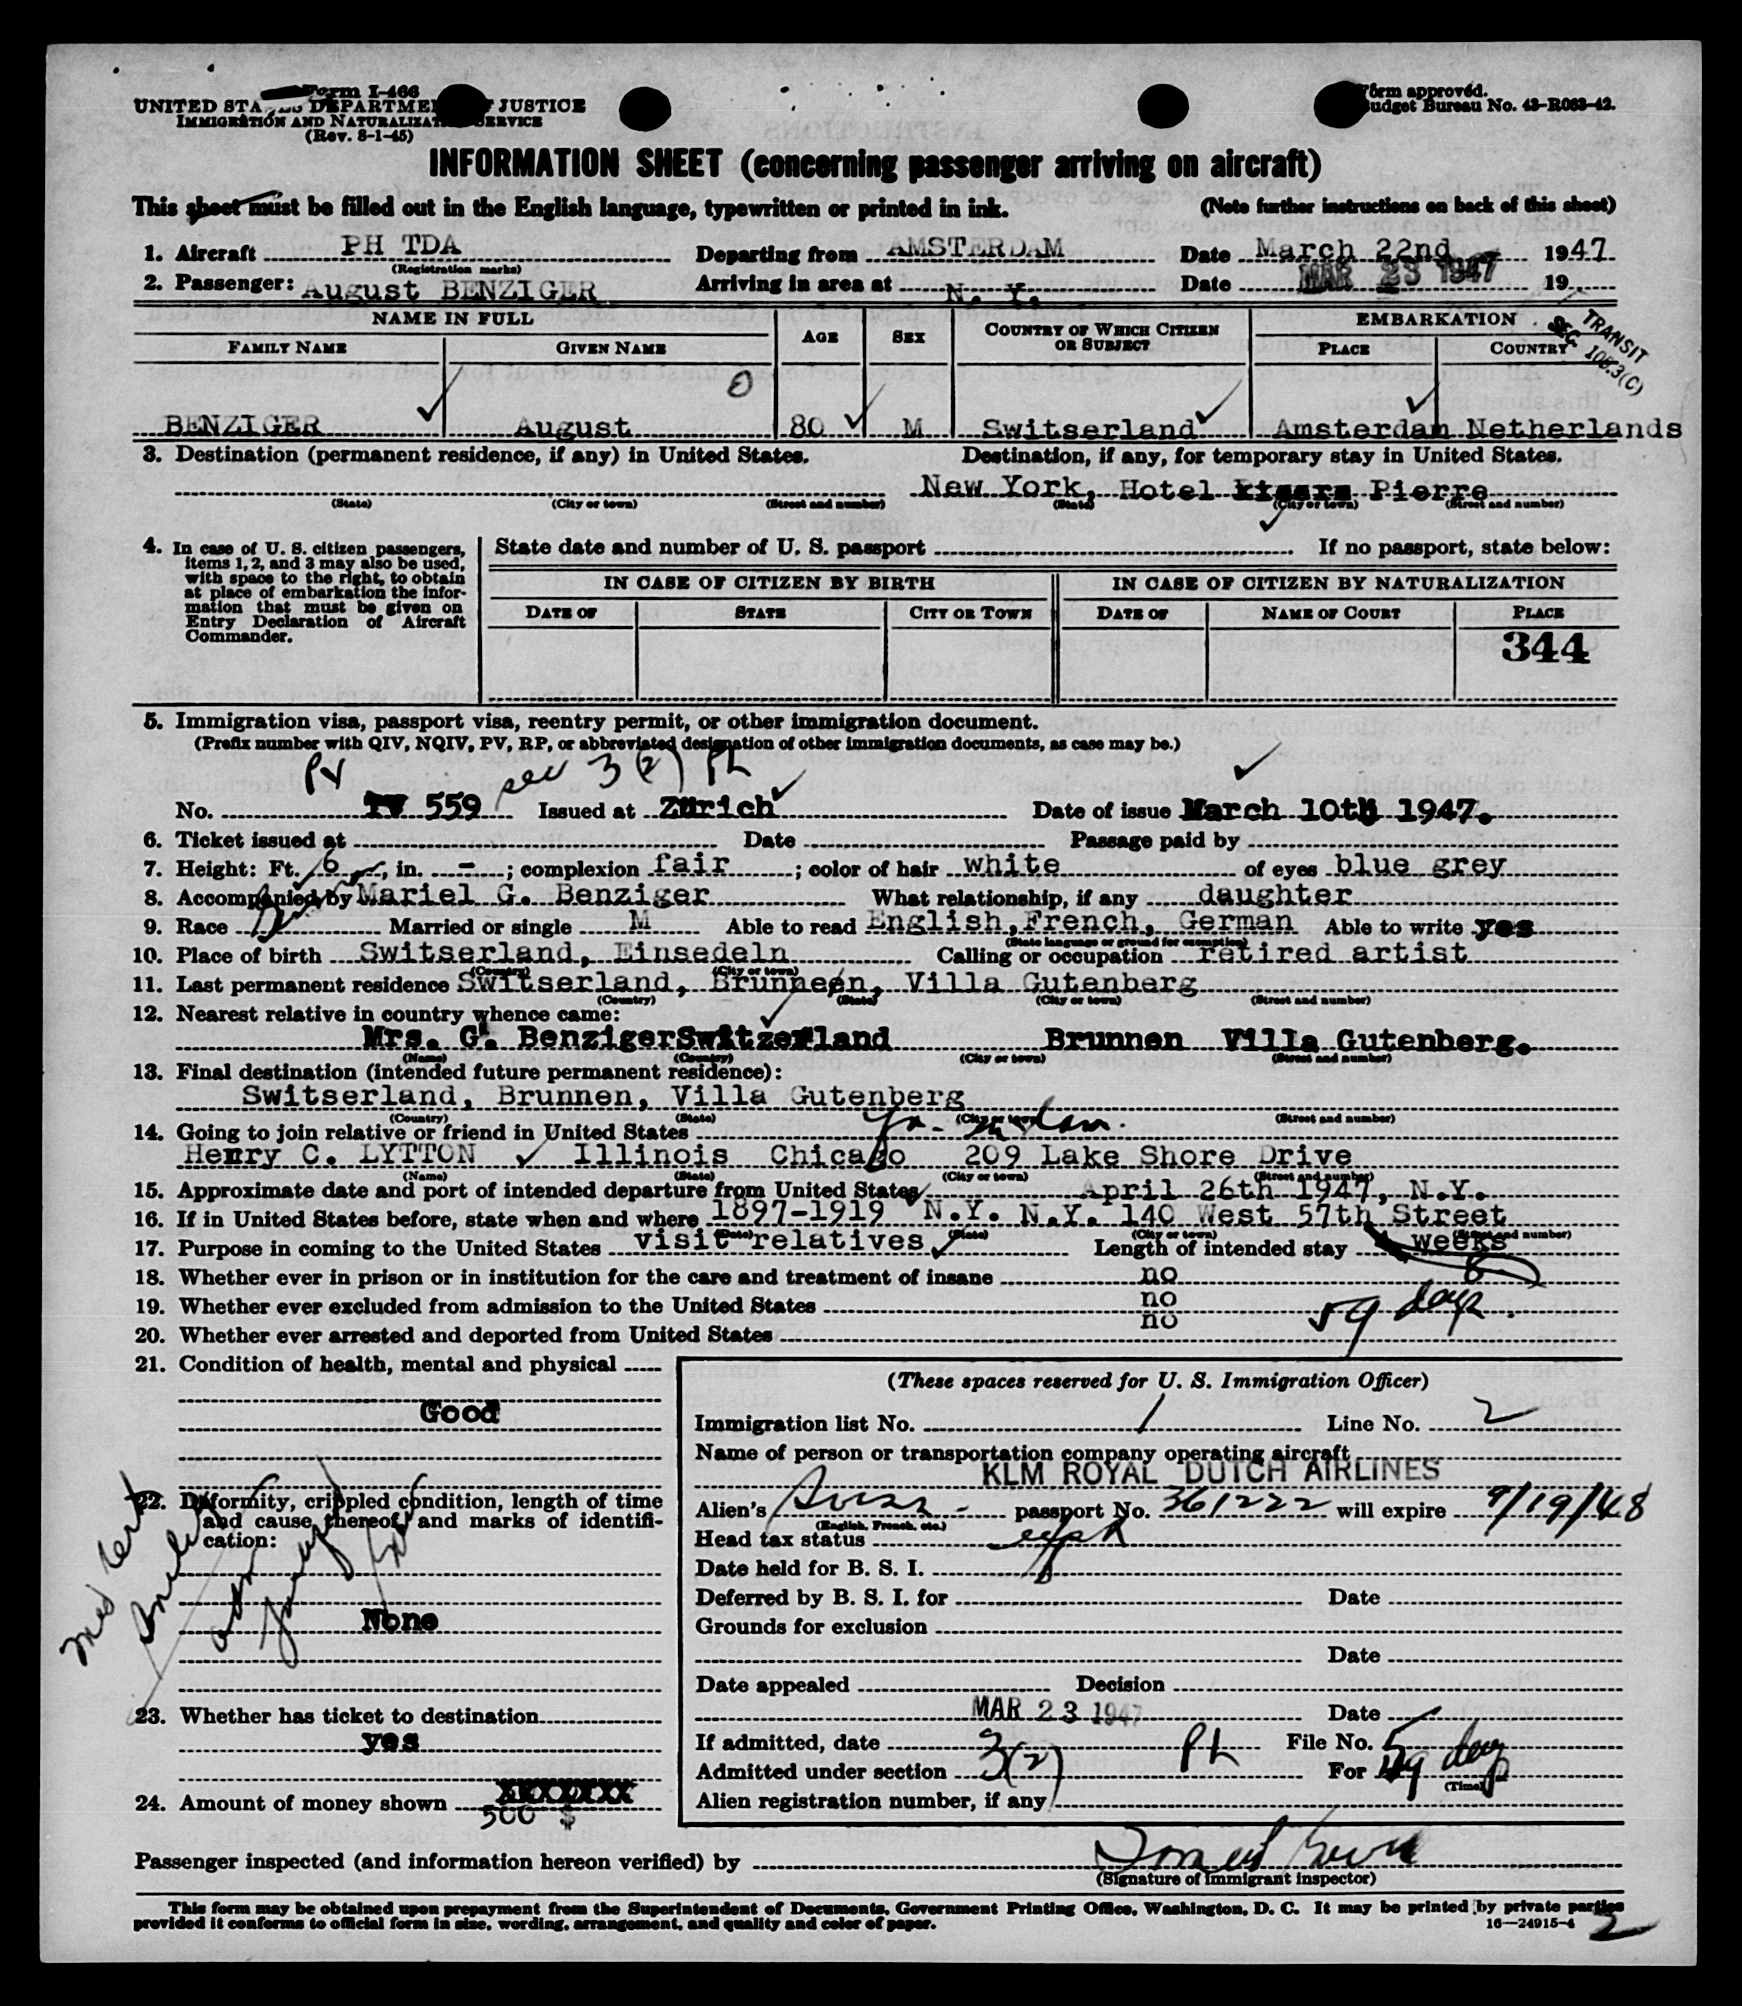 Form I-466
UNITED STATES DEPARTMENT OF JUSTICE
IMMIGRATION AND NATURALIZATION SERVICE
(Rev. 8-1-45)
Form approved.
Budget Bureau No. 43-R063-42.
INFORMATION SHEET (concerning passenger arriving on aircraft)
This sheet must be filled out in the English language, typewritten or printed in ink. (Note further instructions on back of this sheet)
1. Aircraft PH TDA Departing from AMSTERDAM Date March 22nd 1947
(Registration marks)
2. Passenger: August BENZIGER Arriving in area at N. Y. Date MAR 23 1947 19
NAME IN FULL AGE SEX COUNTRY OF WHICH CITIZEN OR SUBJECT EMBARKATION
TRANSIT SEC. 105.3(C)
FAMILY NAME GIVEN NAME PLACE COUNTRY
0
BENZIGER August 80 M Switserland Amsterdam Netherlands
3. Destination (permanent residence, if any) in United States. Destination, if any, for temporary stay in United States.
New York, Hotel Pierre
(State) (City or town) (Street and number) (State) (City or town) (Street and number)
4. In case of U. S. citizen passengers, items 1, 2, and 3 may also be used, with space to the right, to obtain at place of embarkation the information that must be given on Entry Declaration of Aircraft Commander.
State date and number of U. S. passport If no passport, state below:
IN CASE OF CITIZEN BY BIRTH IN CASE OF CITIZEN BY NATURALIZATION
DATE OF STATE CITY OR TOWN DATE OF NAME OF COURT PLACE
344
5. Immigration visa, passport visa, reentry permit, or other immigration document.
(Prefix number with QIV, NQIV, PV, RP, or abbreviated designation of other immigration documents, as case may be.)
PV sec 3(2) Ph
No. TV 559 Issued at Zürich Date of issue March 10th 1947.
6. Ticket issued at Date Passage paid by
7. Height: Ft. 6, in. - ; complexion fair ; color of hair white of eyes blue grey
8. Accompanied by Mariel G. Benziger What relationship, if any daughter
9. Race Married or single M Able to read English, French, German Able to write yes
(State language or ground for exemption)
10. Place of birth Switserland, Einsedeln Calling or occupation retired artist
(Country) (City or town)
11. Last permanent residence Switserland, Brunneen, Villa Gutenberg
(Country) (State) (City or town) (Street and number)
12. Nearest relative in country whence came:
Mrs. G. Benziger Switzerland Brunnen Villa Gutenberg.
(Name) (Country) (City or town) (Street and number)
13. Final destination (intended future permanent residence):
Switserland, Brunnen, Villa Gutenberg
(Country) (State) (City or town) (Street and number)
14. Going to join relative or friend in United States
Henry C. LYTTON Illinois Chicago 209 Lake Shore Drive
(Name) (State) (City or town) (Street and number)
15. Approximate date and port of intended departure from United States April 26th 1947, N.Y.
16. If in United States before, state when and where 1897-1919 N.Y. N.Y. 140 West 57th Street
(Date) (State) (City or town) (Street and number)
17. Purpose in coming to the United States visit relatives Length of intended stay weeks
18. Whether ever in prison or in institution for the care and treatment of insane no
19. Whether ever excluded from admission to the United States no
59 days.
20. Whether ever arrested and deported from United States no
21. Condition of health, mental and physical
Good
22. Deformity, crippled condition, length of time and cause thereof, and marks of identification:
med cert
None
23. Whether has ticket to destination
yes
24. Amount of money shown XXXXXXX
500 $
(These spaces reserved for U. S. Immigration Officer)
Immigration list No. 1 Line No. 2
Name of person or transportation company operating aircraft
KLM ROYAL DUTCH AIRLINES
Alien's Swiss - passport No. 361222 will expire 9/19/48
(English, French, etc.)
Head tax status
Date held for B. S. I.
Deferred by B. S. I. for Date
Grounds for exclusion
Date
Date appealed Decision
MAR 23 1947 Date
If admitted, date File No.
Admitted under section 3(2) Ph For 59 days
(Time)
Alien registration number, if any
Passenger inspected (and information hereon verified) by
(Signature of immigrant inspector)
This form may be obtained upon prepayment from the Superintendent of Documents, Government Printing Office, Washington, D. C. It may be printed by private parties
provided it conforms to official form in size, wording, arrangement, and quality and color of paper. 16—24915-4
2